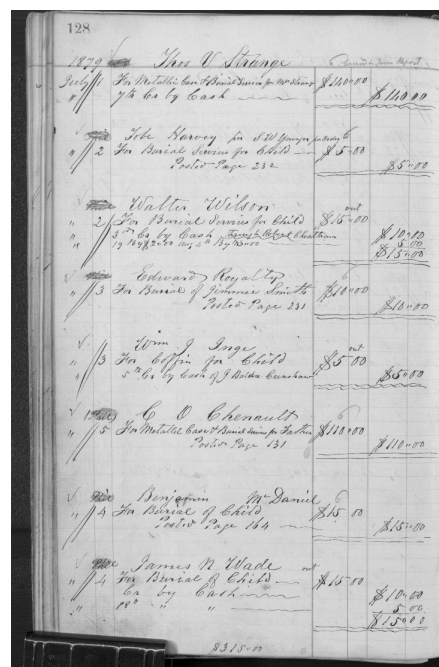 128
1879 Thos V Strange
July 1 For Metallic Case & Burial Services for Mrs Strange $140.00
" 7th Cr by Cash $140.00
Tobe Harvey per S W Younger
" 2 For Burial Services for Child $5.00
Posted Page 232 $5.00
Walter Wilson
" 2 For Burial Services for Child $15.00
" 3rd Cr by Cash $10.00
5.00
$15.00
Edward Royalty
" 3 For Burial of Jimmie Smith $10.00
Posted Page 231 $10.00
Wm J Inge
" 3 For Coffin for Child $5.00
" 5th Cr by Cash of J $5.00
C O Chenault
" 5 For Metallic Case & Burial Services for Father $110.00
Posted Page 131 $110.00
Benjamin McDaniel
" 4 For Burial of Child $15.00
Posted Page 164 $15.00
James N Wade
" 4 For Burial of Child $15.00
" Cr by Cash $10.00
" 18th " " 5.00
$15.00
$315.00